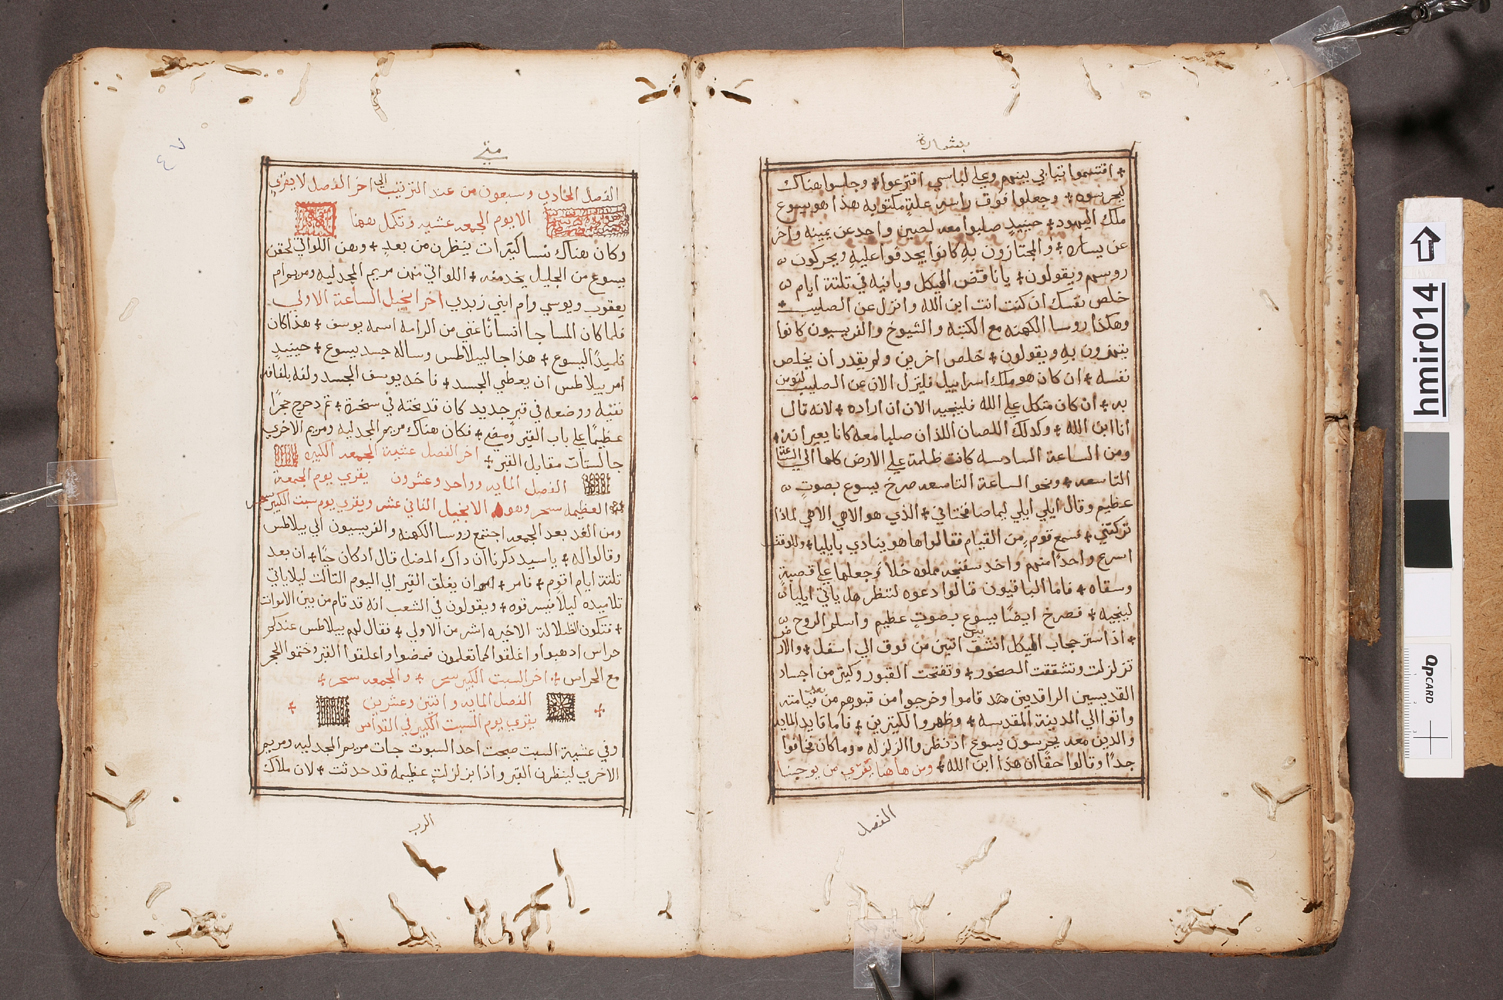 بشارة
✢ اقتسموا ثيابي بينهم وعلي لباسي اقترعوا ✢ وجلسوا هناك
يحرسوه ✢ وجعلوا فوق راسه علة مكتوبه هذا هو يسوع
ملك اليهود ✢ حينيد صلبوا معه لصين واحد عن يمينه واخر
عن يساره ✢ والمجتازون به كانوا يجدفوا عليه ويحركون
روسهم ويقولون ✢ يا ناقض الهيكل وبانيه في تلتة ايام
خلص نفسك ان كنت انت ابن الله وانزل عن الصليب ✢
وهكذا روسا الكهنه مع الكتبه والشيوخ والفريسيون كانوا
يتهزون به ويقولون ✢ خلص اخرين ولم يقدر ان يخلص
نفسه ✢ ان كان هو ملك اسراييل فلينزل الان عن الصليب لنومن
به ✢ ان كان متكل علي الله فلينجيه الان ان اراده ✢ لانه قال
انا ابن الله ✢ وكدلك اللصان اللذان صلبا معه كانا يعيرانه ✢
ومن الساعة السادسه كانت ظلمة علي الارض كلها الي الساعة
التاسعه ✢ ونحو الساعة التاسعه صرخ يسوع بصوت
عظيم وقال ايلي ايلي لما صافختاني ✢ الذي هو الاهي الاهي لماذا
تركتني ✢ فسمع قوم من القيام فقالوا ها هو ينادي بايليا ✢ وللوقت
اسرع واحدا منهم واخد سفنجه مملوه خلا وجعلها علي قصبة
وسقاه ✢ فاما الباقيون قالوا دعوه لننظر هل ياتي ايليا
لينجيه ✢ فصرخ ايضا يسوع بصوت عظيم واسلم الروح
✢ اذا ستر حجاب الهيكل انشق اتنين من فوق الي اسفل ✢ والارض
تزلزلت وتشققت الصخور ✢ وتفتحت القبور وكثير من اجساد
القديسين الراقدين قاموا وخرجوا من قبورهم من بعد قيامته
واتوا الي المدينة المقدسه ✢ وظهروا لكثيرين ✢ فاما قايد المايه
والدين معه يحرسون يسوع اذ نظروا الزلزله وما كان فخافوا
جدا وقالوا حقا ان هذا ابن الله ✢ ومن هاهنا يقري من يوحنا
الفصل
متي
٤٧
الفصل الحادي وسبعون من عند الترتيب الي اخر الفصل لا يقري
الا يوم الجمعه عشيه وتكمل ههنا
وكان هناك نسا كثيرات ينظرن من بعد ✢ وهن اللواتي لحقن
يسوع من الجليل يخدمنه ✢ اللواتي منهن مريم المجدليه ومريم ام
يعقوب ويوسي وام ابني زبدي اخر انجيل الساعة الاولي
فلما كان المسا جا انسانا غني من الرامه اسمه يوسف ✢ هذا كان
تلميدا ليسوع ✢ هذا جا لبيلاطس وساله جسد يسوع ✢ حينيد
امر بيلاطس ان يعطي الجسد ✢ فاخد يوسف الجسد ولفه بلفافه
نقيه ووضعه في قبر جديد كان قد نحته في صخرة ✢ تم دحرج حجرا
عظيما علي باب القبر ومضي ✢ فكان هناك مريم المجدليه ومريم الاخري
جالستات مقابل القبر ✢ اخر الفصل عشية الجمعه الكبيره
الفصل المايه وواحد وعشرون يقري يوم الجمعه
العظيمه سحر وهو الانجيل التاني عشر ويقري يوم سبت الكبير سحر
ومن الغد بعد الجمعه اجتمع روسا الكهنه والفريسيون الي بيلاطس
وقالوا له ✢ يا سيد دكرنا ان داك المضل قال اد كان حيا ✢ ان بعد
تلتة ايام اقوم ✢ فامر ان يغلق القبر الي اليوم التالت ليلا ياتي
تلاميده ليلا فيسرقوه ✢ ويقولون في الشعب انه قد قام من بين الاموات
✢ فتكون الظلالة الاخيره اشر من الاولي ✢ فقال لهم بيلاطس عندكم
حراس ادهبوا واغلقوا كما تعلمون فمضوا واغلقوا القبر وختموا الحجر
مع الحراس ✢ اخر السبت الكبير سحر ✢ والجمعه سحر ✢
الفصل المايه واتنين وعشرين
يقري يوم السبت الكبير في القداس
وفي عشية السبت صبحت احد السبوت جات مريم المجدليه ومريم
الاخري لينظرن القبر واذا بزلزلت عظيمه قد حدثت ✢ لان ملاك
الرب
hmir014
QPCARD